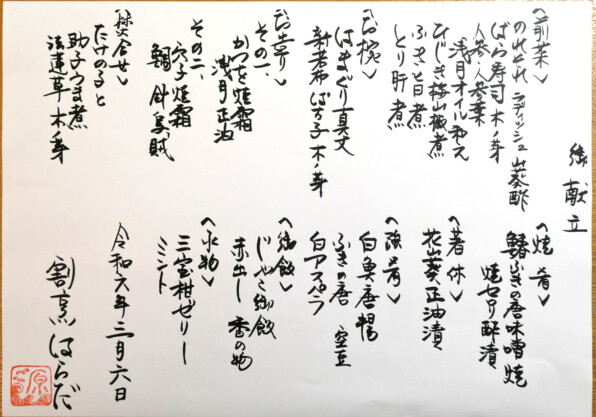 御献立
〈前菜〉
のれそれ ラディッシュ 山葵酢
ばら寿司 木ノ芽
人参・人参葉
浅月オイル和え
ひじき梅山椒煮
ふきと日煮
とり肝煮
〈お椀〉
はまぐり真丈
新若布 ばち子 木ノ芽
〈お造り〉
その一、
かつを焼霜
浅月 正油
その二、
穴子焼霜
鯛 針烏賊
〈焚合せ〉
たけのこと
助子うま煮
法蓮草 木ノ芽
〈焼肴〉
鰆ふきの唐味噌焼
焼セリ酢漬
〈箸休〉
花山葵正油漬
〈強肴〉
白魚唐揚
ふきの唐 空豆
白アスパラ
〈御飯〉
じゃこ御飯
赤出し 香の物
〈水物〉
三宝柑ゼリー
ミント
令和六年三月六日
割烹 はらだ